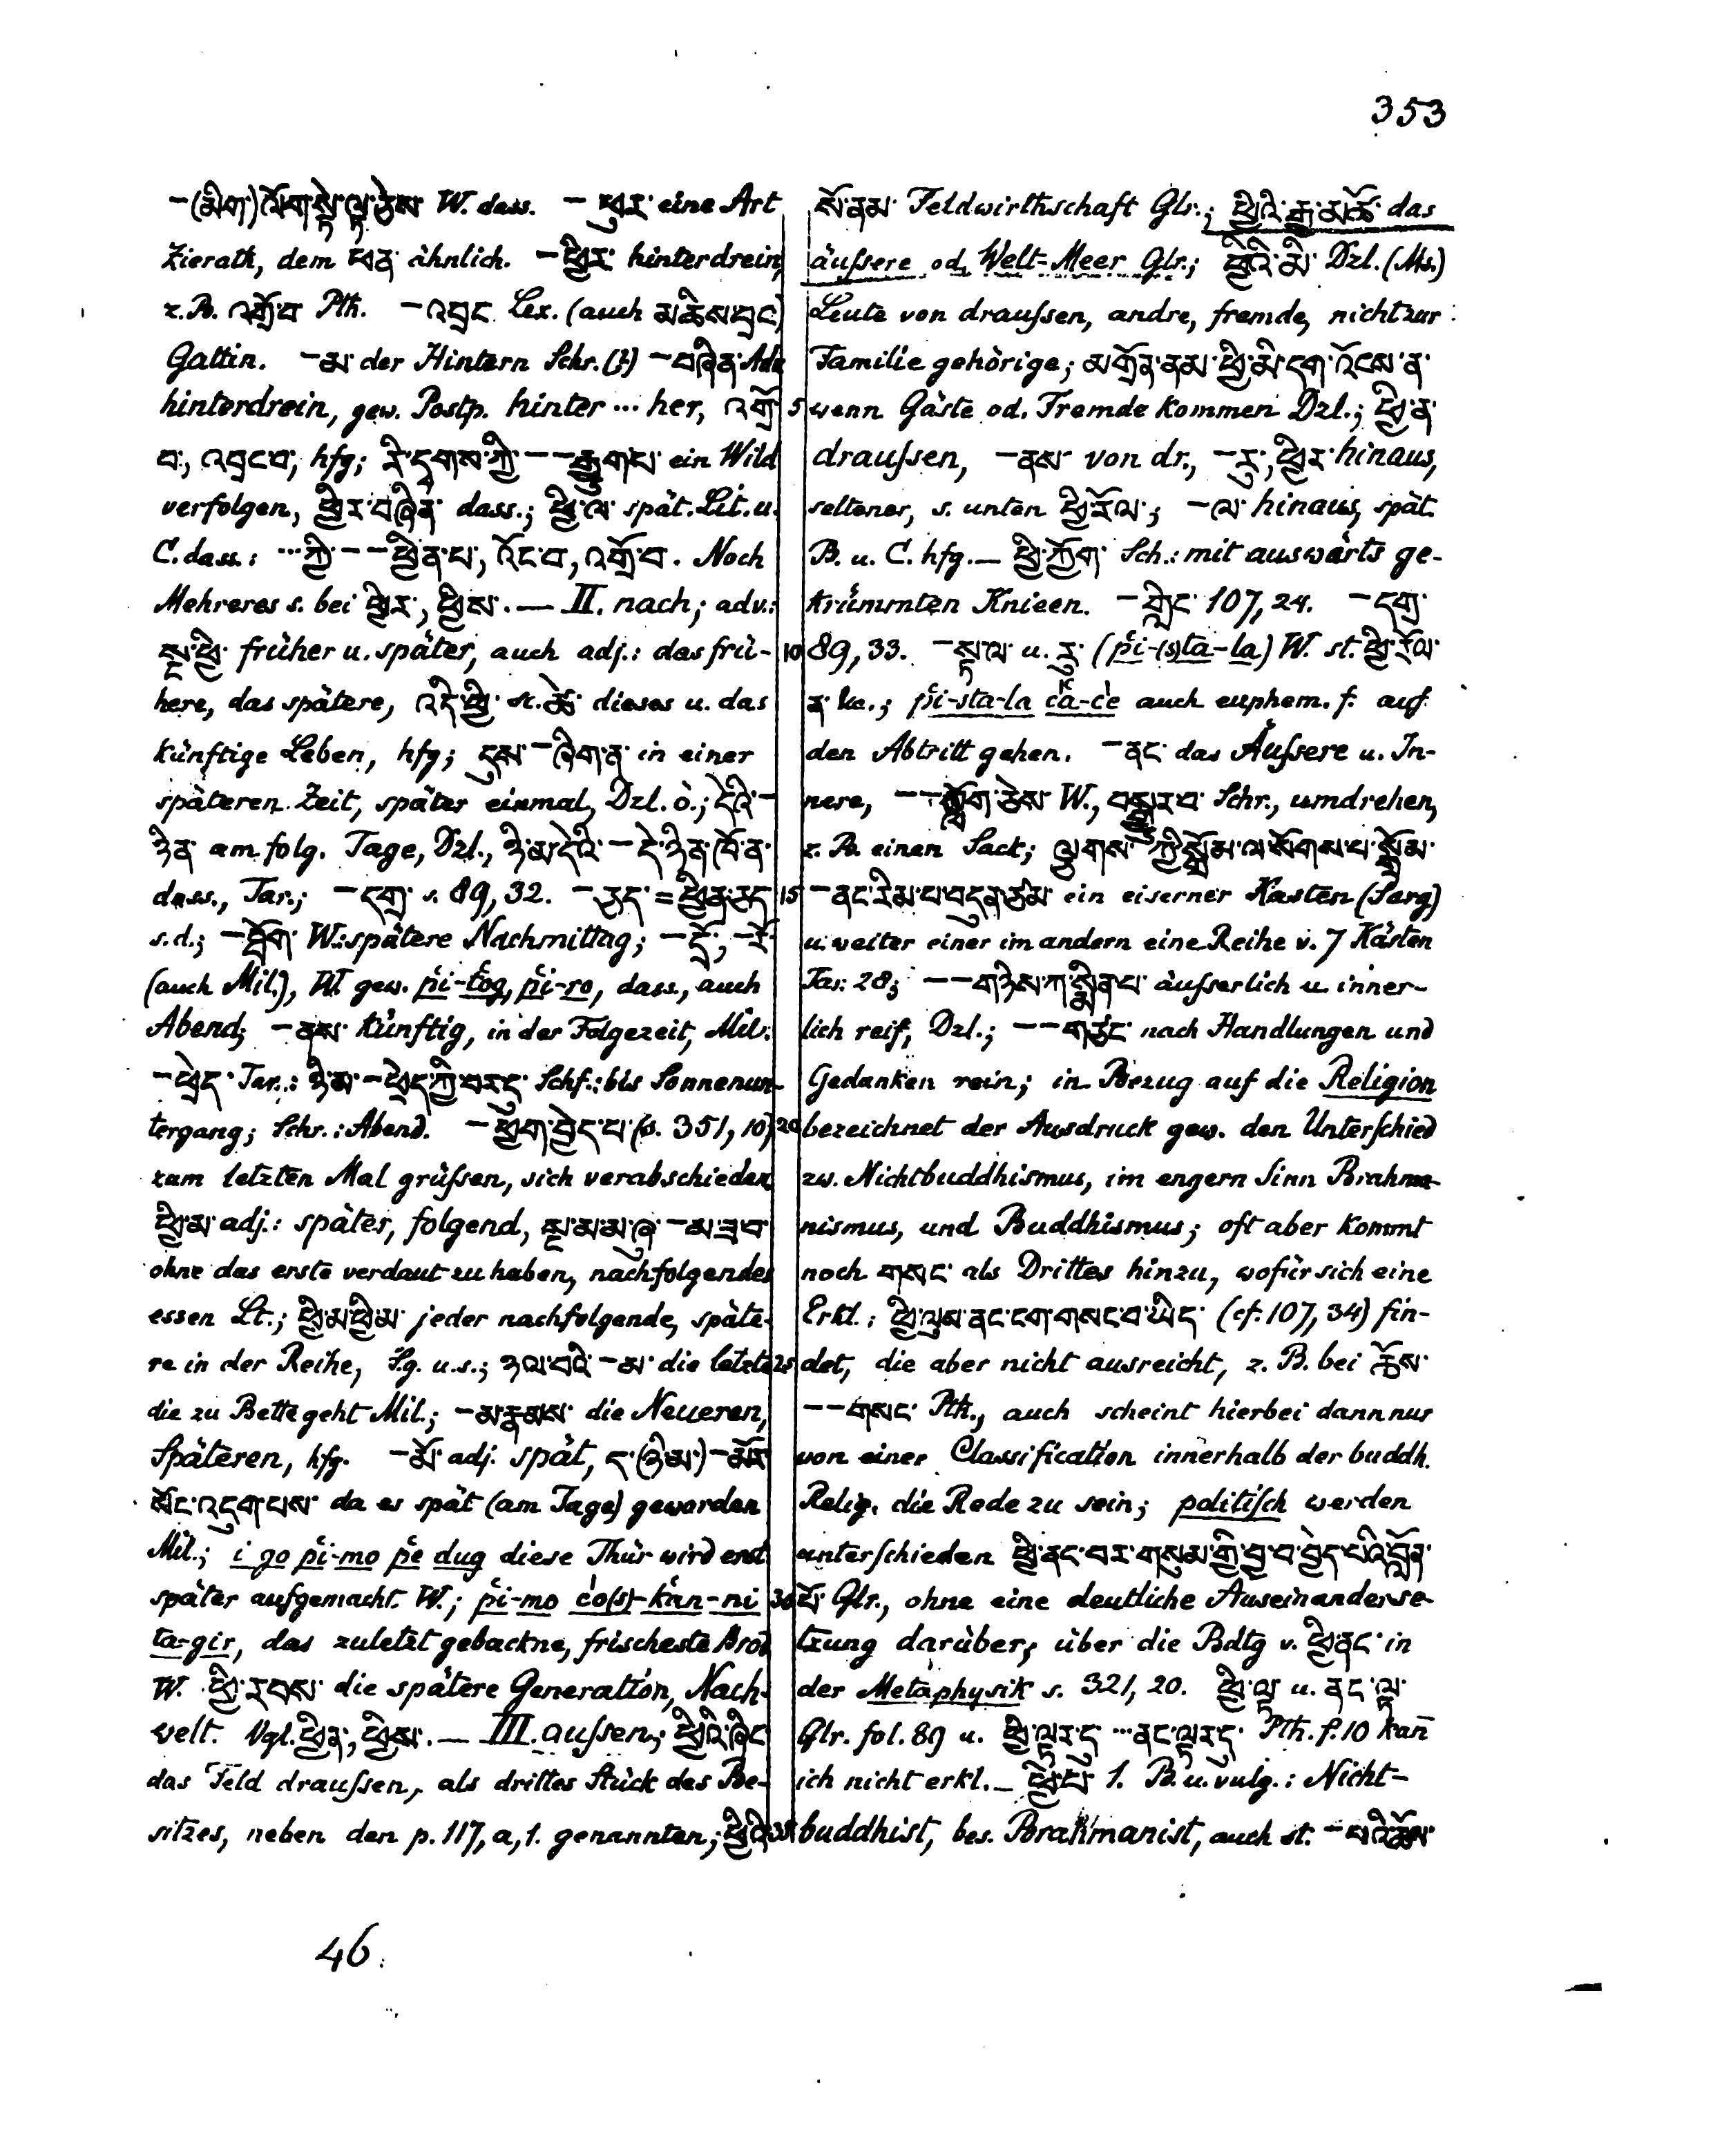 353
-(མིག་)ལོག་སྟེ་ལྟ་ཅེས་ W. dass. - ཕུར་ eine Art
Zierath, dem ཕན་ ähnlich. - ཕྱིར་ hinterdrein,
z.B. འགྲོ་བ Pth. - འབྲང Lex. (auch མ་ཆིས་བྲང)
Gattin. - མ་ der Hintern Schr. (?) - བཞིན་ Adv
hinterdrein, gew. Postp. hinter ... her, འགྲོ་
བ་, འབྲང་བ་, hfg; རི་དྭགས་ཀྱི་ -- རྒྱུགཔ་ ein Wild
verfolgen, ཕྱིར་བཞིན་ dass.; ཕྱི་ལ་ spät. Lit. u.
C. dass.: ... ཀྱི་ -- ཕྱིན་པ་, འོང་བ་, འགྲོ་བ་. Noch
Mehreres s. bei ཕྱིར་, ཕྱིས་. — II. nach; adv.:
སྔ་ཕྱི་ früher u. später, auch adj.: das frü-
here, das spätere, འདི་ཕྱི་ sc. ཚེ་ dieses u. das
künftige Leben, hfg; དུས་ - ཞིག་ན་ in einer
späteren Zeit, später einmal, Dzl. ö.; དེའི་ -
ཉིན་ am folg. Tage, Dzl., ཉི་མ་དེའི་ - དེ་ཉིན་ཁོ་ན་
dass., Tar.; - དགྲ་ s. 89, 32. - ཉད་ = ཕྱིན་ཉད 15
s.d.; - ཐོག་ W.: spätere Nachmittag; - དྲོ་, - རོ་
(auch Mil.), W. gew. p̔i-t̔og, p̔i-ro, dass., auch
Abend; - ནས་ künftig, in der Folgezeit, Mil.
- ཕྲེད་ Tar.: ཉི་མ་ - ཕྲེད་ཀྱི་བརདུ་ Schf.: bis Sonnenun-
tergang; Schr.: Abend. - ཕྱག་བྱེད་པ་ (s. 351, 10) 20
zum letzten Mal grüssen, sich verabschieden,
ཕྱི་མ་ adj.: später, folgend, སྔ་མ་མ་ཞུ་ - མ་ཟ་བ་
ohne das erste verdaut zu haben, nachfolgendes
essen Lt.; ཕྱི་མ་ཕྱི་མ་ jeder nachfolgende, späte-
re in der Reihe, Sg. u. s.; ཉལ་བའི་ - མ་ die letzte 25
die zu Bette geht Mil.; - མ་རྣམས་ die Neueren,
Späteren, hfg. - མོ་ adj. spät, ད་(ཉི་མ་) - མོར་
སོང་འདུག་པས་ da es spät (am Tage) geworden
Mil.; i go p̔i-mo p̔e dug diese Thür wird erst
später aufgemacht. W.; p̔i-mo c̔o(s)-k̔an-ni 30
ta-gir, das zuletzt gebackne, frischeste Brod
W. ཕྱི་རབས་ die spätere Generation, Nach-
welt. Vgl. ཕྱིན་, ཕྱིས་. — III. aussen; ཕྱིའི་ཞིང
das Feld draussen, als drittes Stück des Be-
sitzes, neben den p. 117, a, 1. genannten; ཕྱིའི 35
སོ་ནམ་ Feldwirthschaft Glr.; ཕྱིའི་རྒྱ་མཚོ་ das
äussere od. Welt-Meer Glr.; ཕྱིའི་མི་ Dzl. (Ms.)
Leute von draussen, andre, fremde, nicht zur
Familie gehörige; མགྲོན་ནམ་ཕྱི་མི་དག་འོངས་ན་
5 wenn Gäste od. Fremde kommen Dzl.; ཕྱི་ན་
draussen, - ནས་ von dr., - རུ་, ཕྱིར་ hinaus,
seltener, s. unten ཕྱི་རོལ་; - ལ་ hinaus, spät.
B. u. C. hfg. — ཕྱི་ཀྱོག་ Sch.: mit auswärts ge-
krümmten Knieen. - གླིང་ 107, 24. - དགྲ་
10 89, 33. - སྟ་ལ་ u. རུ་ (p̔i-(s)ta-la) W. st. ཕྱི་རོལ་
ན་ ; p̔i-sta-la c̔a-c̔e auch euphem. f. auf
den Abtritt gehen. - ནང་ das Äussere u. In-
nere, -- སློག་ཅེས་ W., བསྒྱུར་བ་ Schr., umdrehen,
z. B. einen Sack; ལྕགས་ཀྱི་སྒྲོམ་ལ་སོགས་པ་སྒྲོམ་
- ནང་རིམ་པ་བདུན་ཙམ་ ein eiserner Kasten (Sarg)
u. weiter einer im andern eine Reihe v. 7 Kästen
Tar. 28; -- གཉིས་ཀ་སྨིན་པ་ äusserlich u. inner-
lich reif, Dzl.; -- གཙང་ nach Handlungen und
Gedanken rein; in Bezug auf die Religion
bezeichnet der Ausdruck gew. den Unterschied
zw. Nichtbuddhismus, im engern Sinn Brahma-
nismus, und Buddhismus; oft aber kommt
noch གསང་ als Drittes hinzu, wofür sich eine
Erkl.: ཕྱི་ལུས་ནང་ངག་གསང་བ་ཡིད་ (cf. 107, 34) fin-
det, die aber nicht ausreicht, z. B. bei ཆོས་
-- གསང་ Pth., auch scheint hierbei dann nur
von einer Classification innerhalb der buddh.
Relig. die Rede zu sein; politisch werden
unterschieden ཕྱི་ནང་བར་གསུམ་གྱི་བྱ་བ་བྱེད་པའི་བློན་
པོ་ Glr., ohne eine deutliche Auseinanderse-
tzung darüber; über die Bdtg v. ཕྱི་ནང་ in
der Metaphysik s. 321, 20. ཕྱི་ལྟ་ u. ནང་ལྟ་
Glr. fol. 89 u. ཕྱི་ལྟར་དུ་ ... ནང་ལྟར་དུ་ Pth. f. 10 kan̄
ich nicht erkl. — ཕྱི་པ་ 1. B. u. vulg.: Nicht-
buddhist, bes. Brahmanist, auch st. - པའི་ཆོས་
46